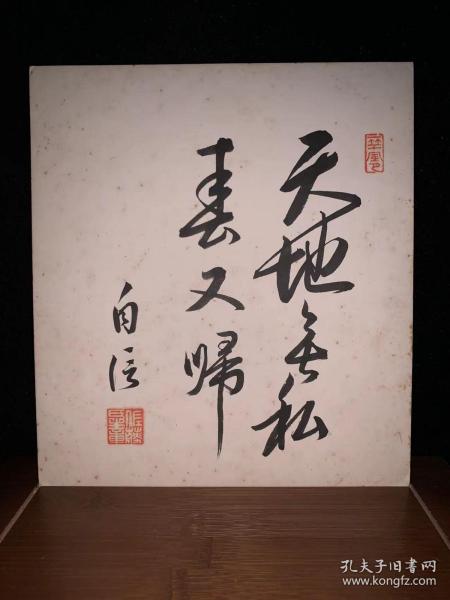 天地無私
春又帰
自信
孔夫子旧书网
www.kongfz.com